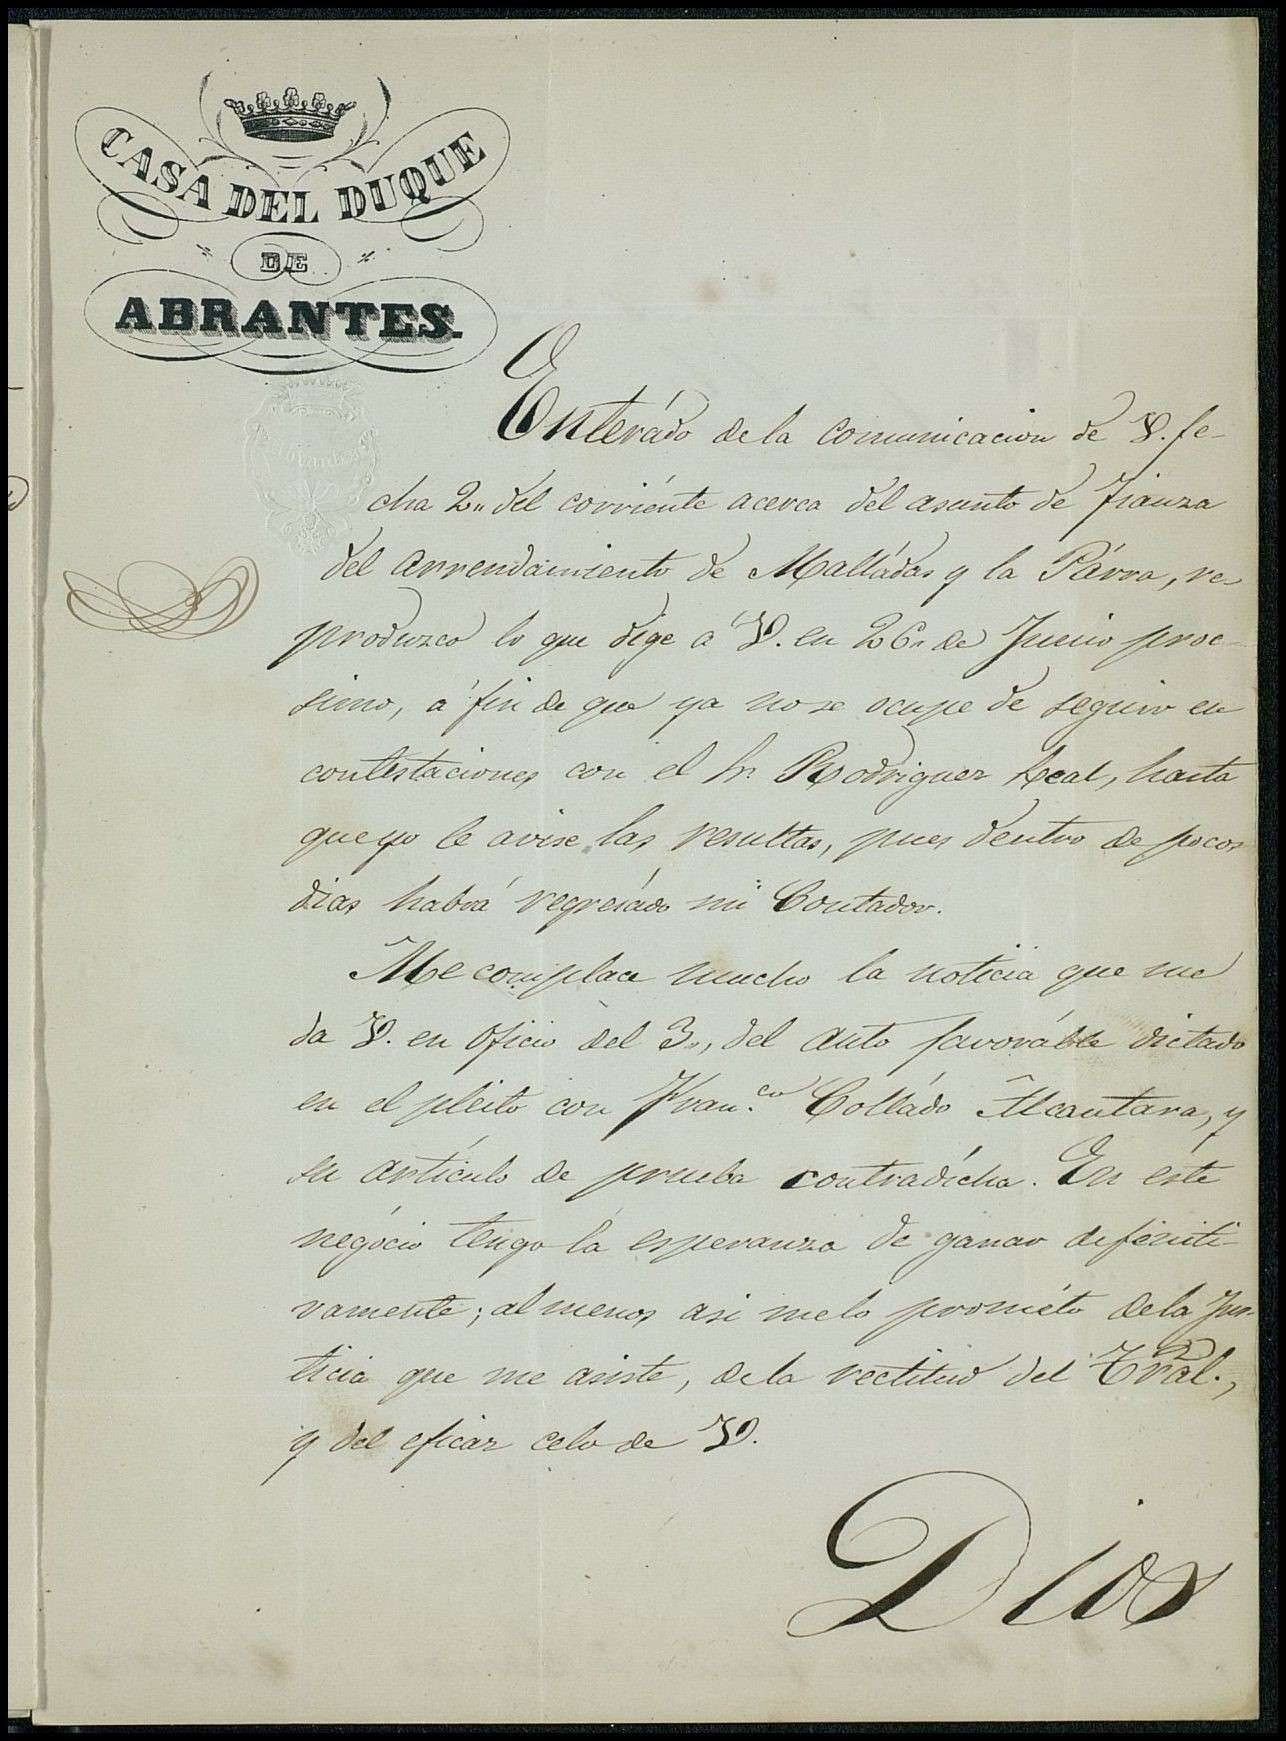 CASA DEL DUQUE
DE
ABRANTES.
Enterádo de la comunicacion de V. fe-
cha 2,, del corriénte acerca del asunto de Fianza
del arrendamiento de Malládas y la Párra, re-
produzco lo que dige á V. en 26,, de Junio proc-
simo, á fin de que ya no se ocupe de seguir en
contestaciones con el Sr. Rodriguez Leal, hasta
que yo le avise las resultas, pues dentro de pocos
dias habrá regresádo mi Contador.
Me complace mucho la noticia que me
da V. en oficio del 3,,, del auto favoráble dictado
en el pleito con Fran.co Colládo Alcantara, y
su artículo de prueba contradícha. En éste
negócio tengo la esperanza de ganar difiniti-
vamente; al menos asi me lo prométo de la Jus-
ticia que me asiste, de la rectitud del Trâl.,
y del eficaz celo de V.
Dios